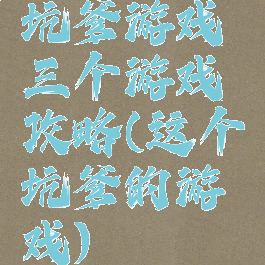 坑爹游戏
三个游戏
攻略(这个
坑爹的游
戏)